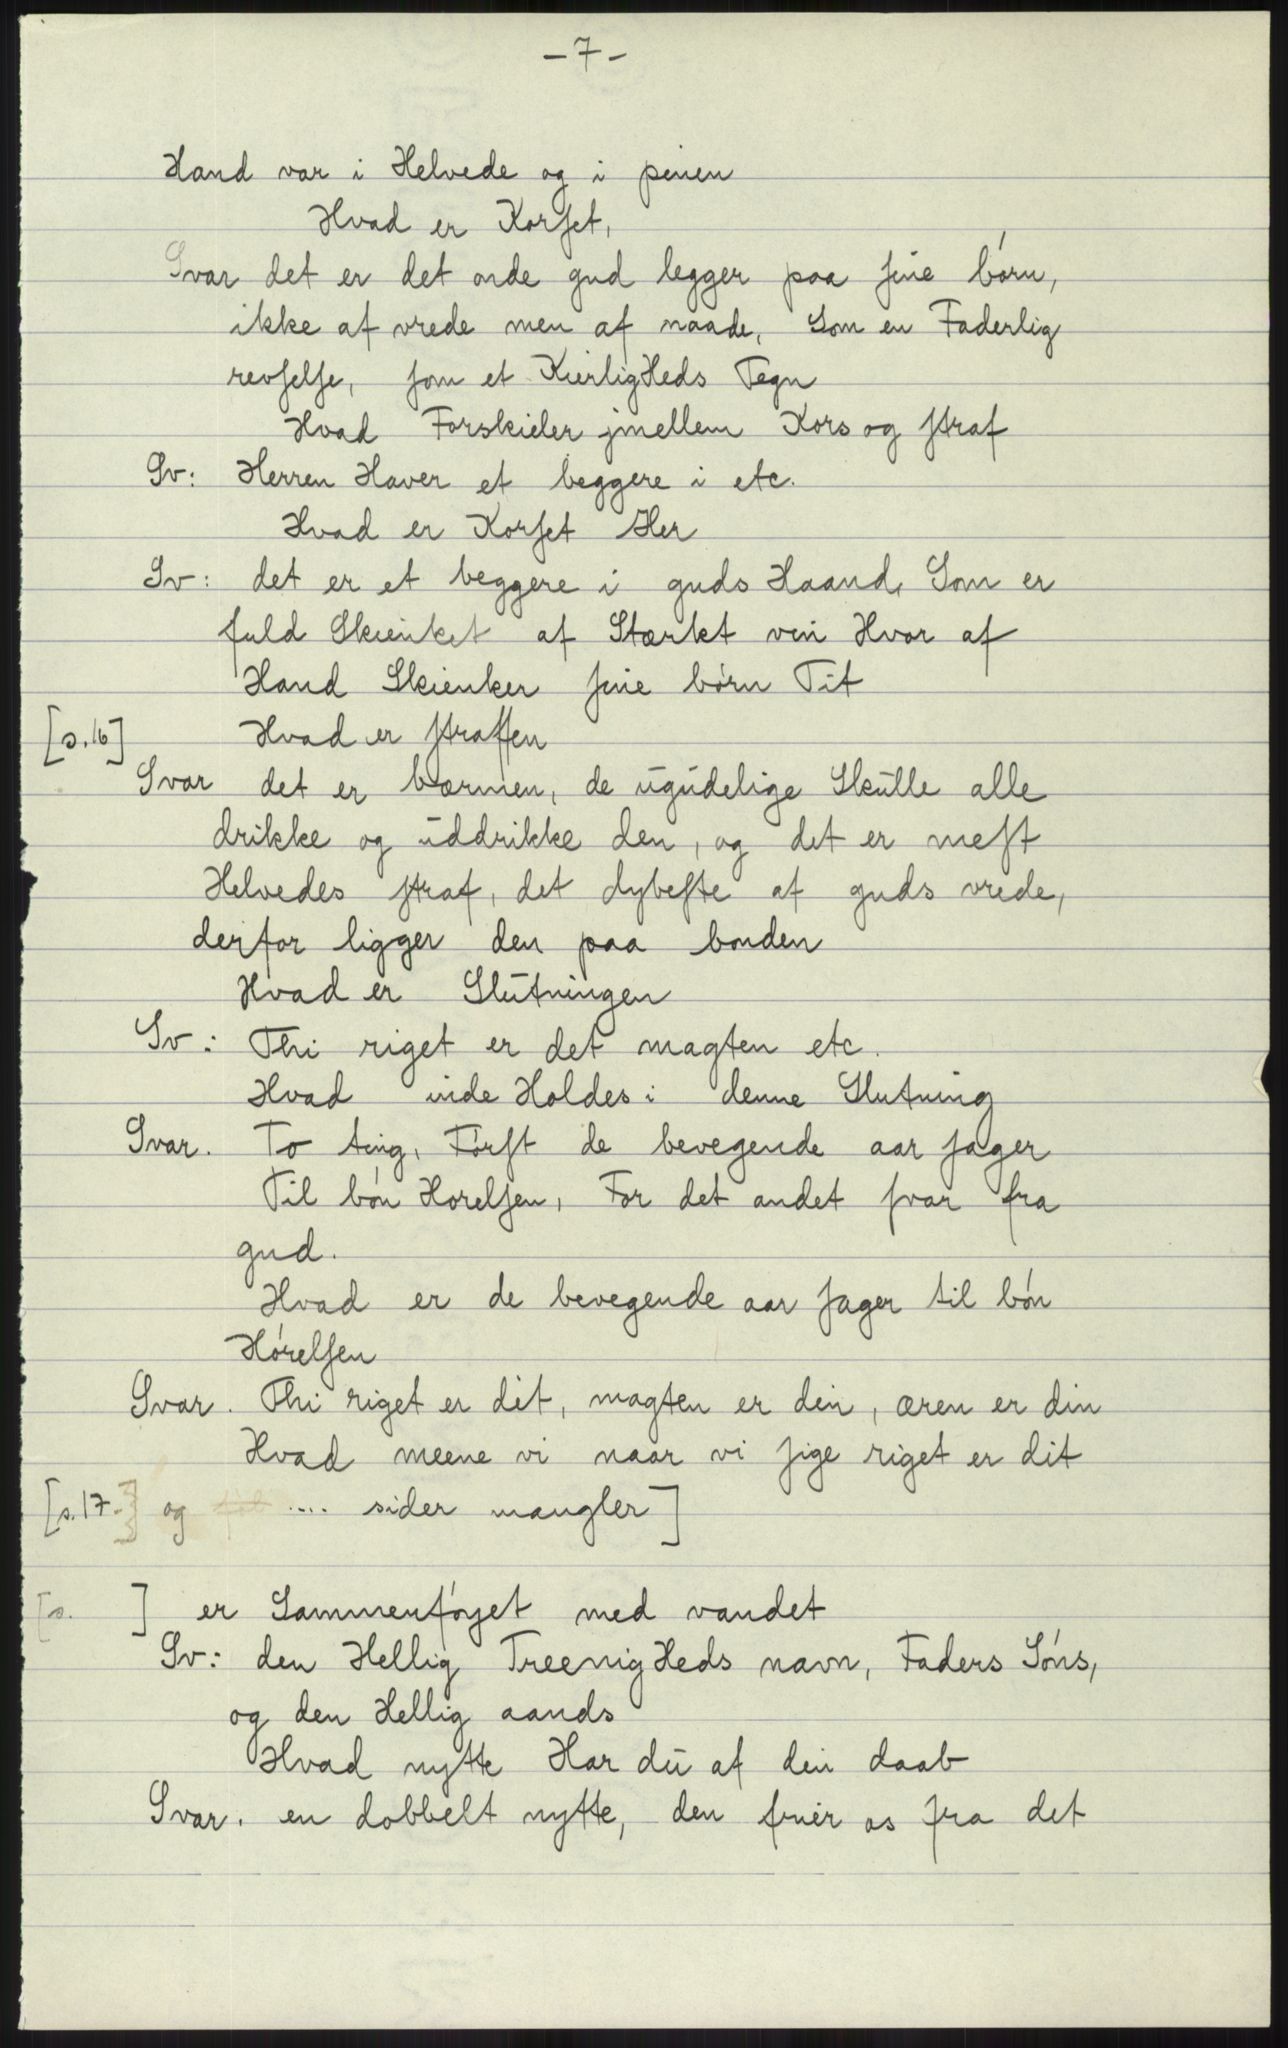 - 7 -
Hand var i Helvede og i pinen
Hvad er Korſet,
Svar det er det onde gud legger paa ſine børn,
ikke af vrede men af naade, Som en Faderlig
revſelſe, ſom et KierligHeds Tegn
Hvad Forskieler jmellem Kors og ſtraf
Sv: Herren Haver et beggere i etc.
Hvad er Korſet Her
Sv: det er et beggere i guds Haand, Som er
fuld Skienket af Stærkt vin Hvor af
Hand Skienker ſine børn Tit
[s. 16] Hvad er ſtraffen
Svar det er bærmen, de ugudelige Skulle alle
drikke og uddrikke den, og det er meſt
Helvedes ſtraf, det dybeſte af guds vrede,
derfor ligger den paa bonden
Hvad er Slutningen
Sv: Thi riget er det magten etc.
Hvad inde Holdes i denne Slutning
Svar. To ting, Førſt de bevegende aar ſager
Til bøn Horelſen, For det andet ſvar fra
gud.
Hvad er de bevegende aar ſager til bøn
Hørelſen
Svar. Thi riget er dit, magten er din, æren er din
Hvad meene vi naar vi ſige riget er dit
[s. 17-] og føl .... sider mangler]
[s. ] er Sammenføyet med vandet
Sv: den Hellig TreenigHeds navn, Faders Søns,
og den Hellig aands
Hvad nytte Har du af din daab
Svar. en dobbelt nytte, den friër os fra det